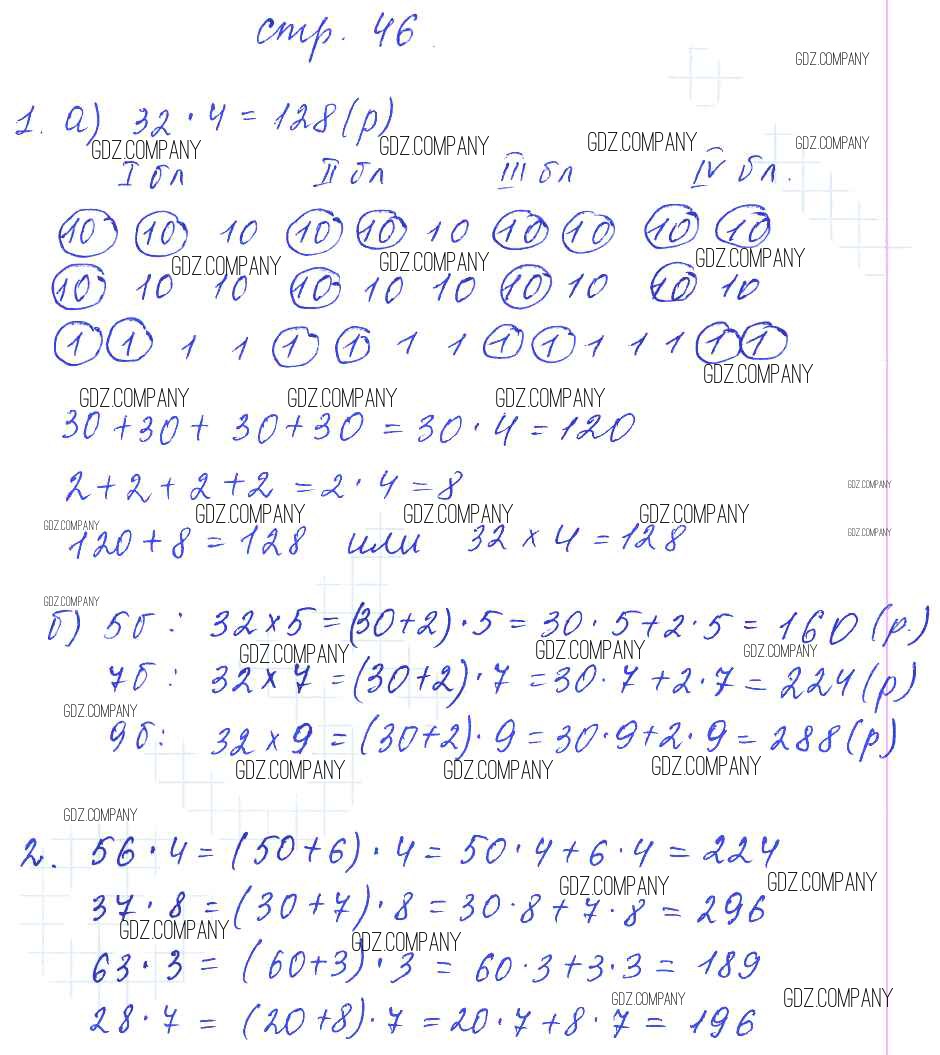 стр. 46.
GDZ.COMPANY
1. а) 32 · 4 = 128 (р)
GDZ.COMPANY GDZ.COMPANY GDZ.COMPANY GDZ.COMPANY
I бл II бл III бл IV бл.
10 10 10 10 10 10 10 10 10 10
GDZ.COMPANY GDZ.COMPANY GDZ.COMPANY
10 10 10 10 10 10 10 10 10 10
1 1 1 1 1 1 1 1 1 1 1 1 1 1 1
GDZ.COMPANY
GDZ.COMPANY GDZ.COMPANY GDZ.COMPANY
30 + 30 + 30 + 30 = 30 · 4 = 120
2 + 2 + 2 + 2 = 2 · 4 = 8
GDZ.COMPANY
GDZ.COMPANY GDZ.COMPANY GDZ.COMPANY
GDZ.COMPANY GDZ.COMPANY
120 + 8 = 128 или 32 × 4 = 128
GDZ.COMPANY
б) 5б : 32 × 5 = (30+2) · 5 = 30 · 5 + 2 · 5 = 160 (р.)
GDZ.COMPANY GDZ.COMPANY GDZ.COMPANY
7б : 32 × 7 = (30+2) · 7 = 30 · 7 + 2 · 7 = 224 (р)
GDZ.COMPANY
9б: 32 × 9 = (30+2) · 9 = 30 · 9 + 2 · 9 = 288 (р)
GDZ.COMPANY GDZ.COMPANY GDZ.COMPANY
GDZ.COMPANY
2. 56 · 4 = (50+6) · 4 = 50 · 4 + 6 · 4 = 224
GDZ.COMPANY GDZ.COMPANY
37 · 8 = (30+7) · 8 = 30 · 8 + 7 · 8 = 296
GDZ.COMPANY GDZ.COMPANY
63 · 3 = (60+3) · 3 = 60 · 3 + 3 · 3 = 189
GDZ.COMPANY GDZ.COMPANY
28 · 7 = (20+8) · 7 = 20 · 7 + 8 · 7 = 196